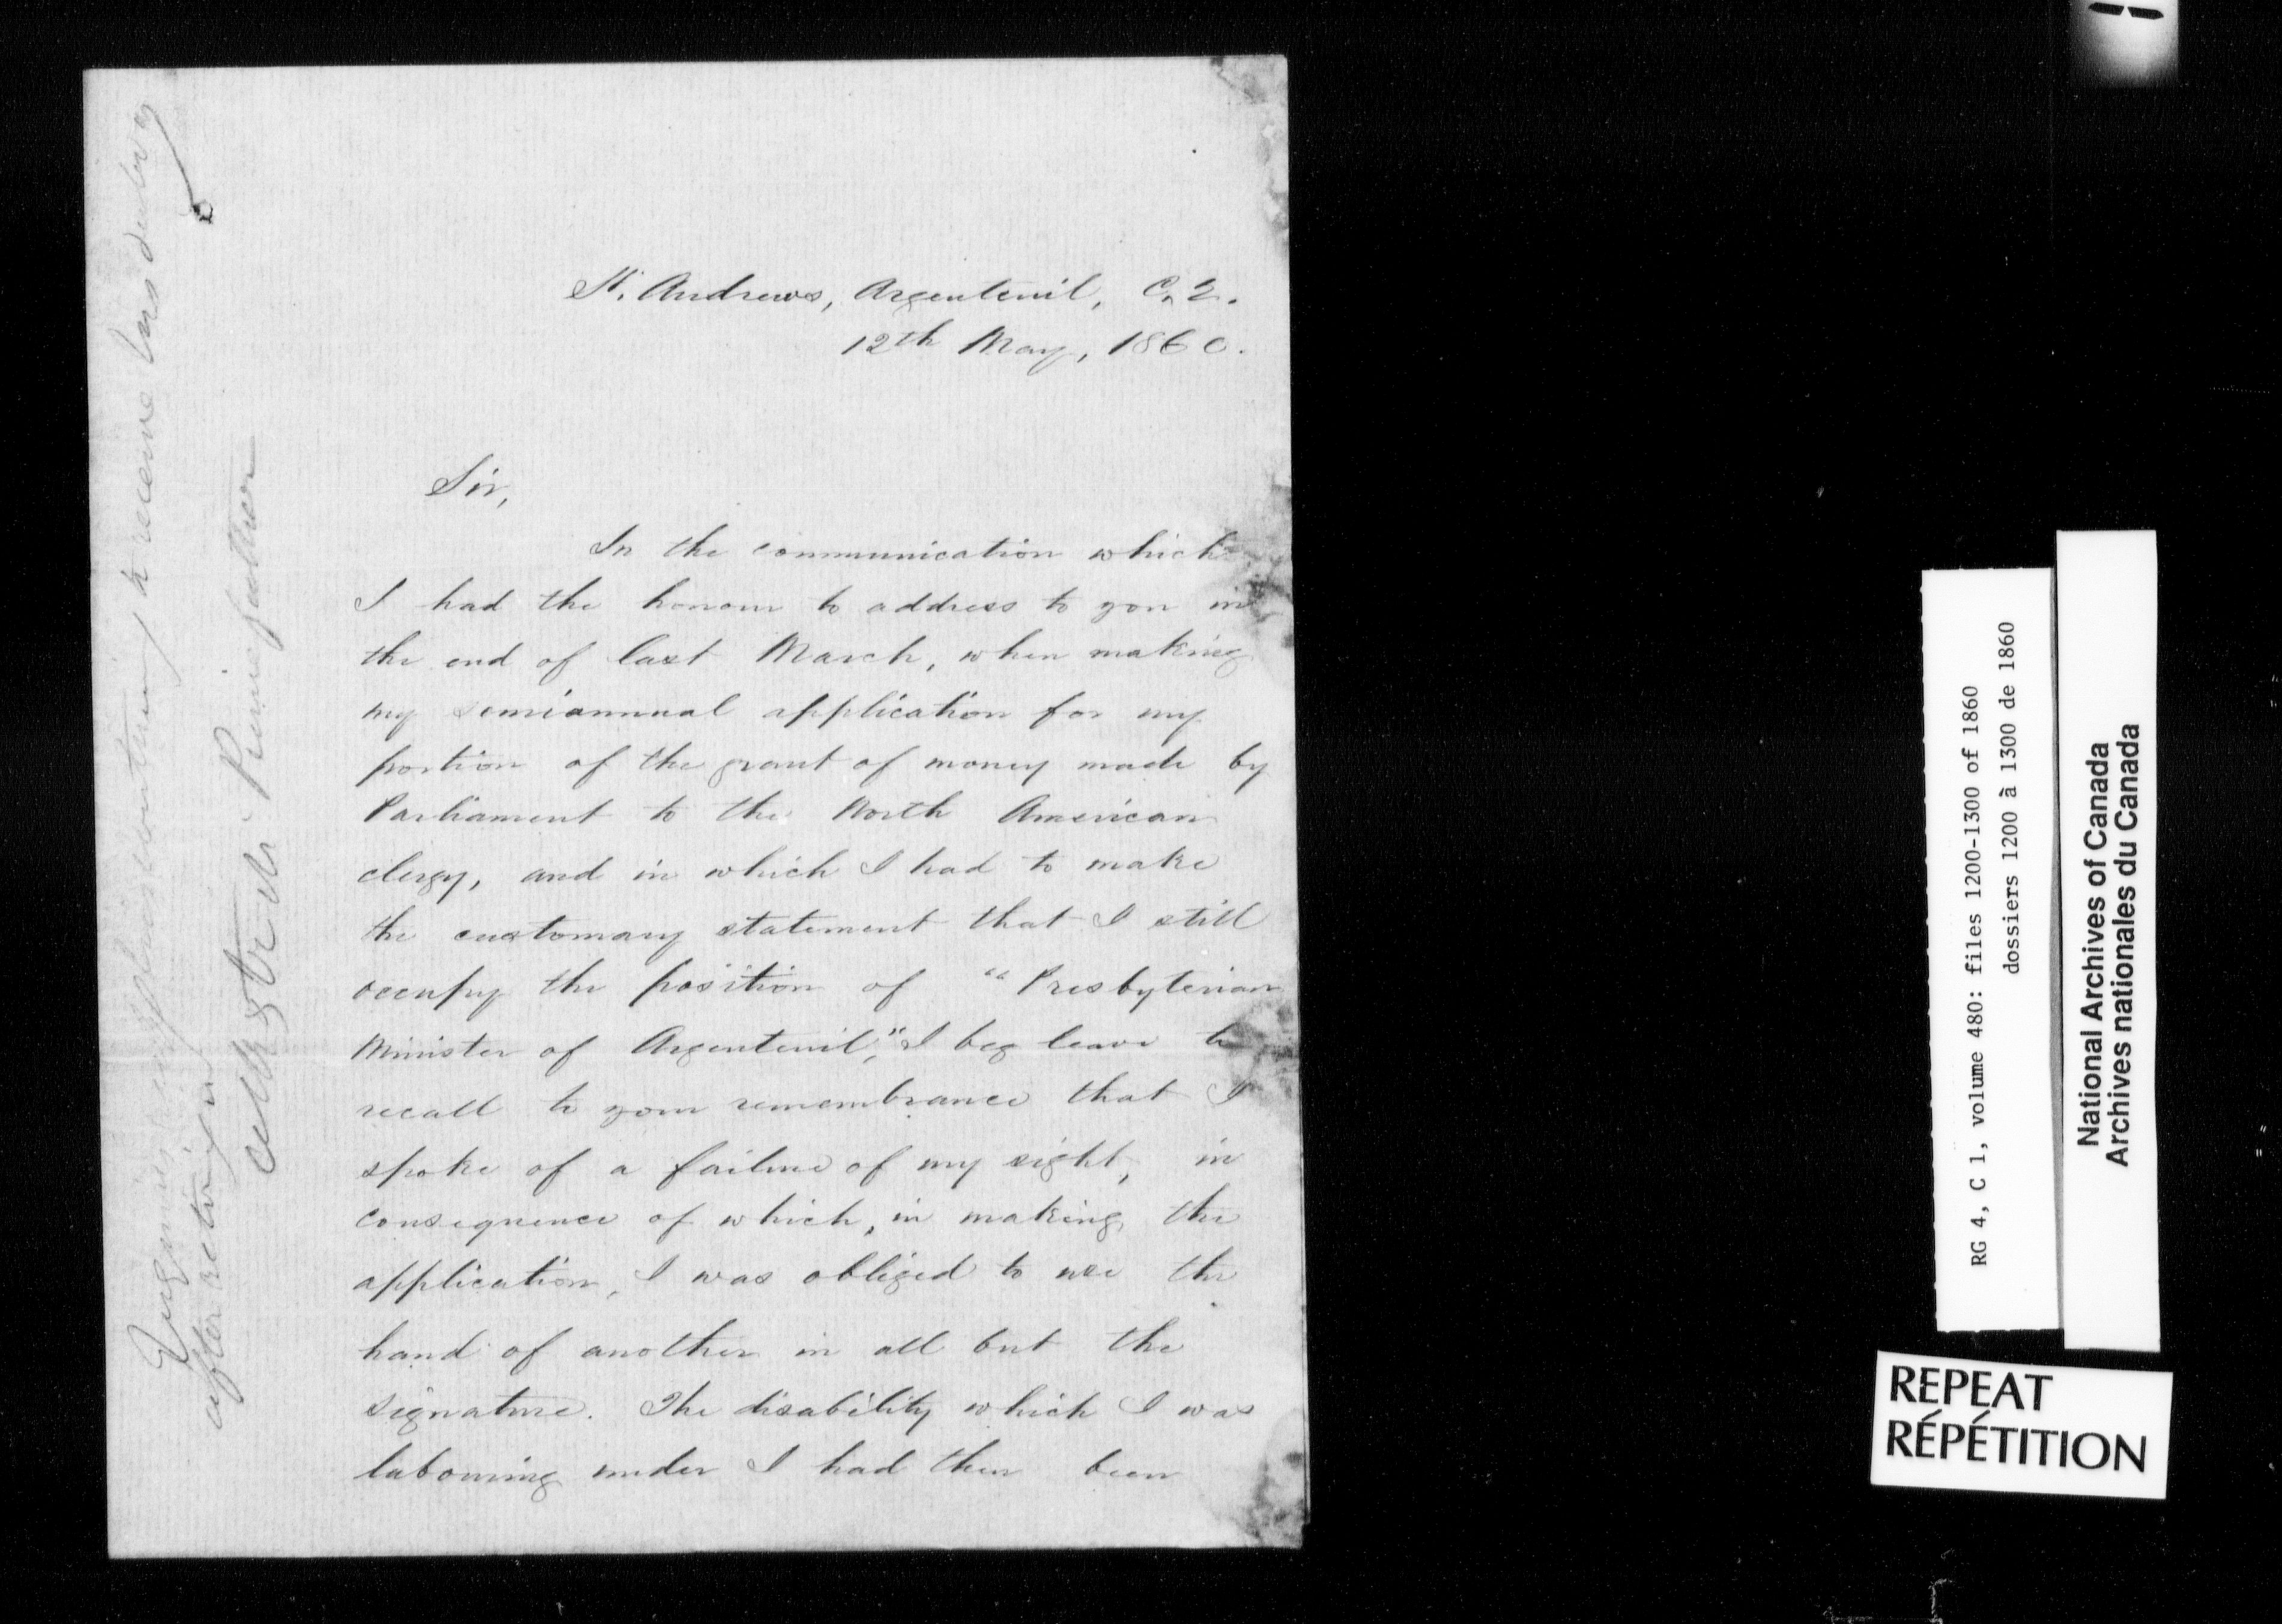 St. Andrews, Argenteuil, C. E.
12th May, 1860.
Sir,
In the communication which
I had the honour to address to you in
the end of last March, when making
my semiannual application for my
portion of the grant of money made by
Parliament to the North American
clergy, and in which I had to make
the customary statement that I still
occupy the position of "Presbyterian
Minister of Argenteuil," I beg leave to
recall to your remembrance that I
spoke of a failure of my sight, in
consequence of which, in making the
application, I was obliged to use the
hand of another in all but the
signature. The disability which I was
labouring under I had then been
to receive his
after retiring
RG 4, C 1, volume 480: files 1200-1300 of 1860
dossiers 1200 à 1300 de 1860
National Archives of Canada
Archives nationales du Canada
REPEAT
RÉPÉTITION